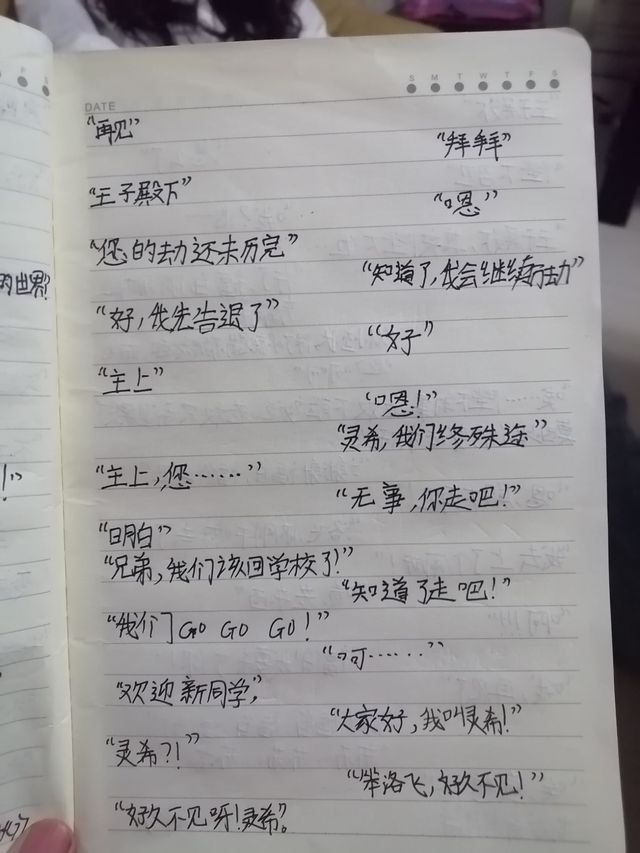 DATE
S M T W T F S
"再见"
"拜拜"
"王子殿下"
"嗯"
"您的劫还未历完"
"知道了,我会继续行动"
"好,我先告退了"
"好"
"主上"
"嗯!"
"灵希,我们终殊途"
"主上,您……"
"无事,你走吧!"
"明白"
"兄弟,我们该回学校了!"
"知道了走吧!"
"我们 GO GO GO!"
"呵……"
"欢迎新同学,
"大家好,我叫灵希!"
"灵希?!"
"笨洛飞,好久不见!"
"好久不见呀!灵希。
的世界?
!"